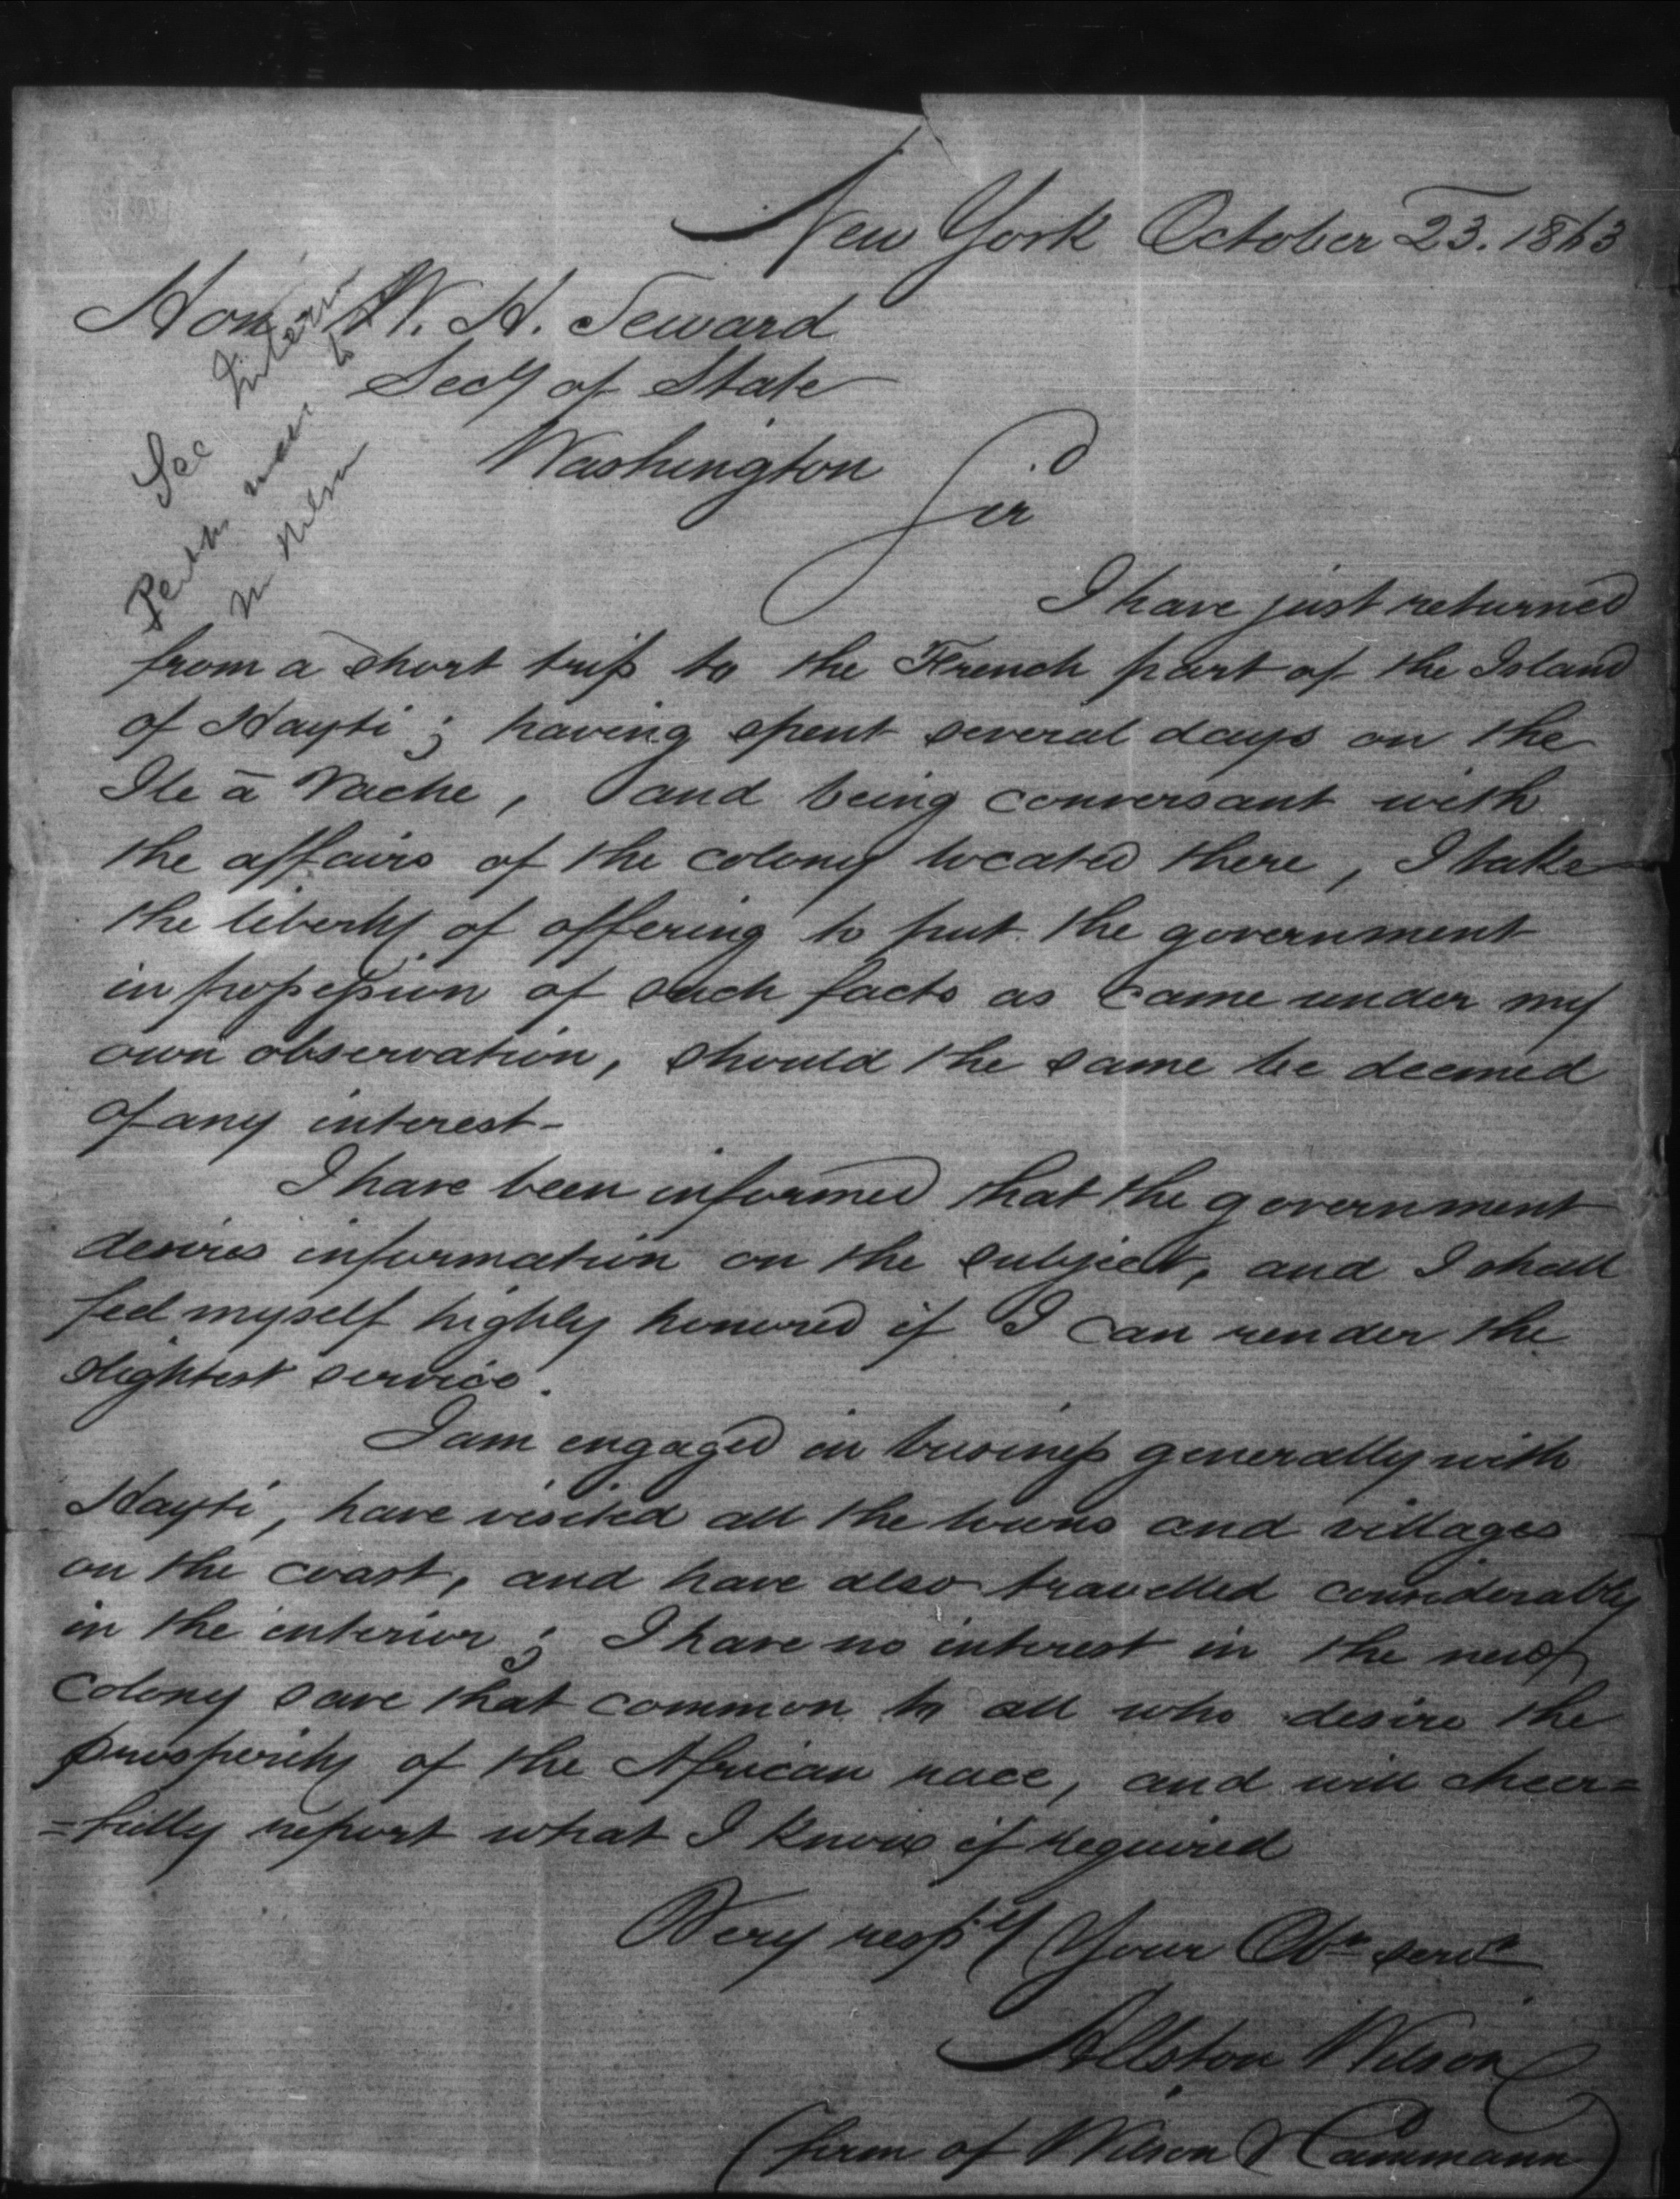 New York October 23. 1863
Hon. W. H. Seward
Secy of State
Washington
Sir
See
to
Mr Wilson
I have just returned
from a short trip to the French part of the Island
of Hayti; having spent several days on the
Ile à Vache, and being conversant with
the affairs of the colony located there, I take
the liberty of offering to put the government
in possession of such facts as came under my
own observation, should the same be deemed
of any interest-
I have been informed that the government
desires information on the subject, and I shall
feel myself highly honored if I can render the
slightest service.
I am engaged in business generally with
Hayti, have visited all the towns and villages
on the coast, and have also travelled considerably
in the interior; I have no interest in the new
colony save that common to all who desire the
prosperity of the African race, and will cheer=
=fully report what I know if required
Very respy Your Obt servt
Allston Wilson
(firm of Wilson & Cammann)